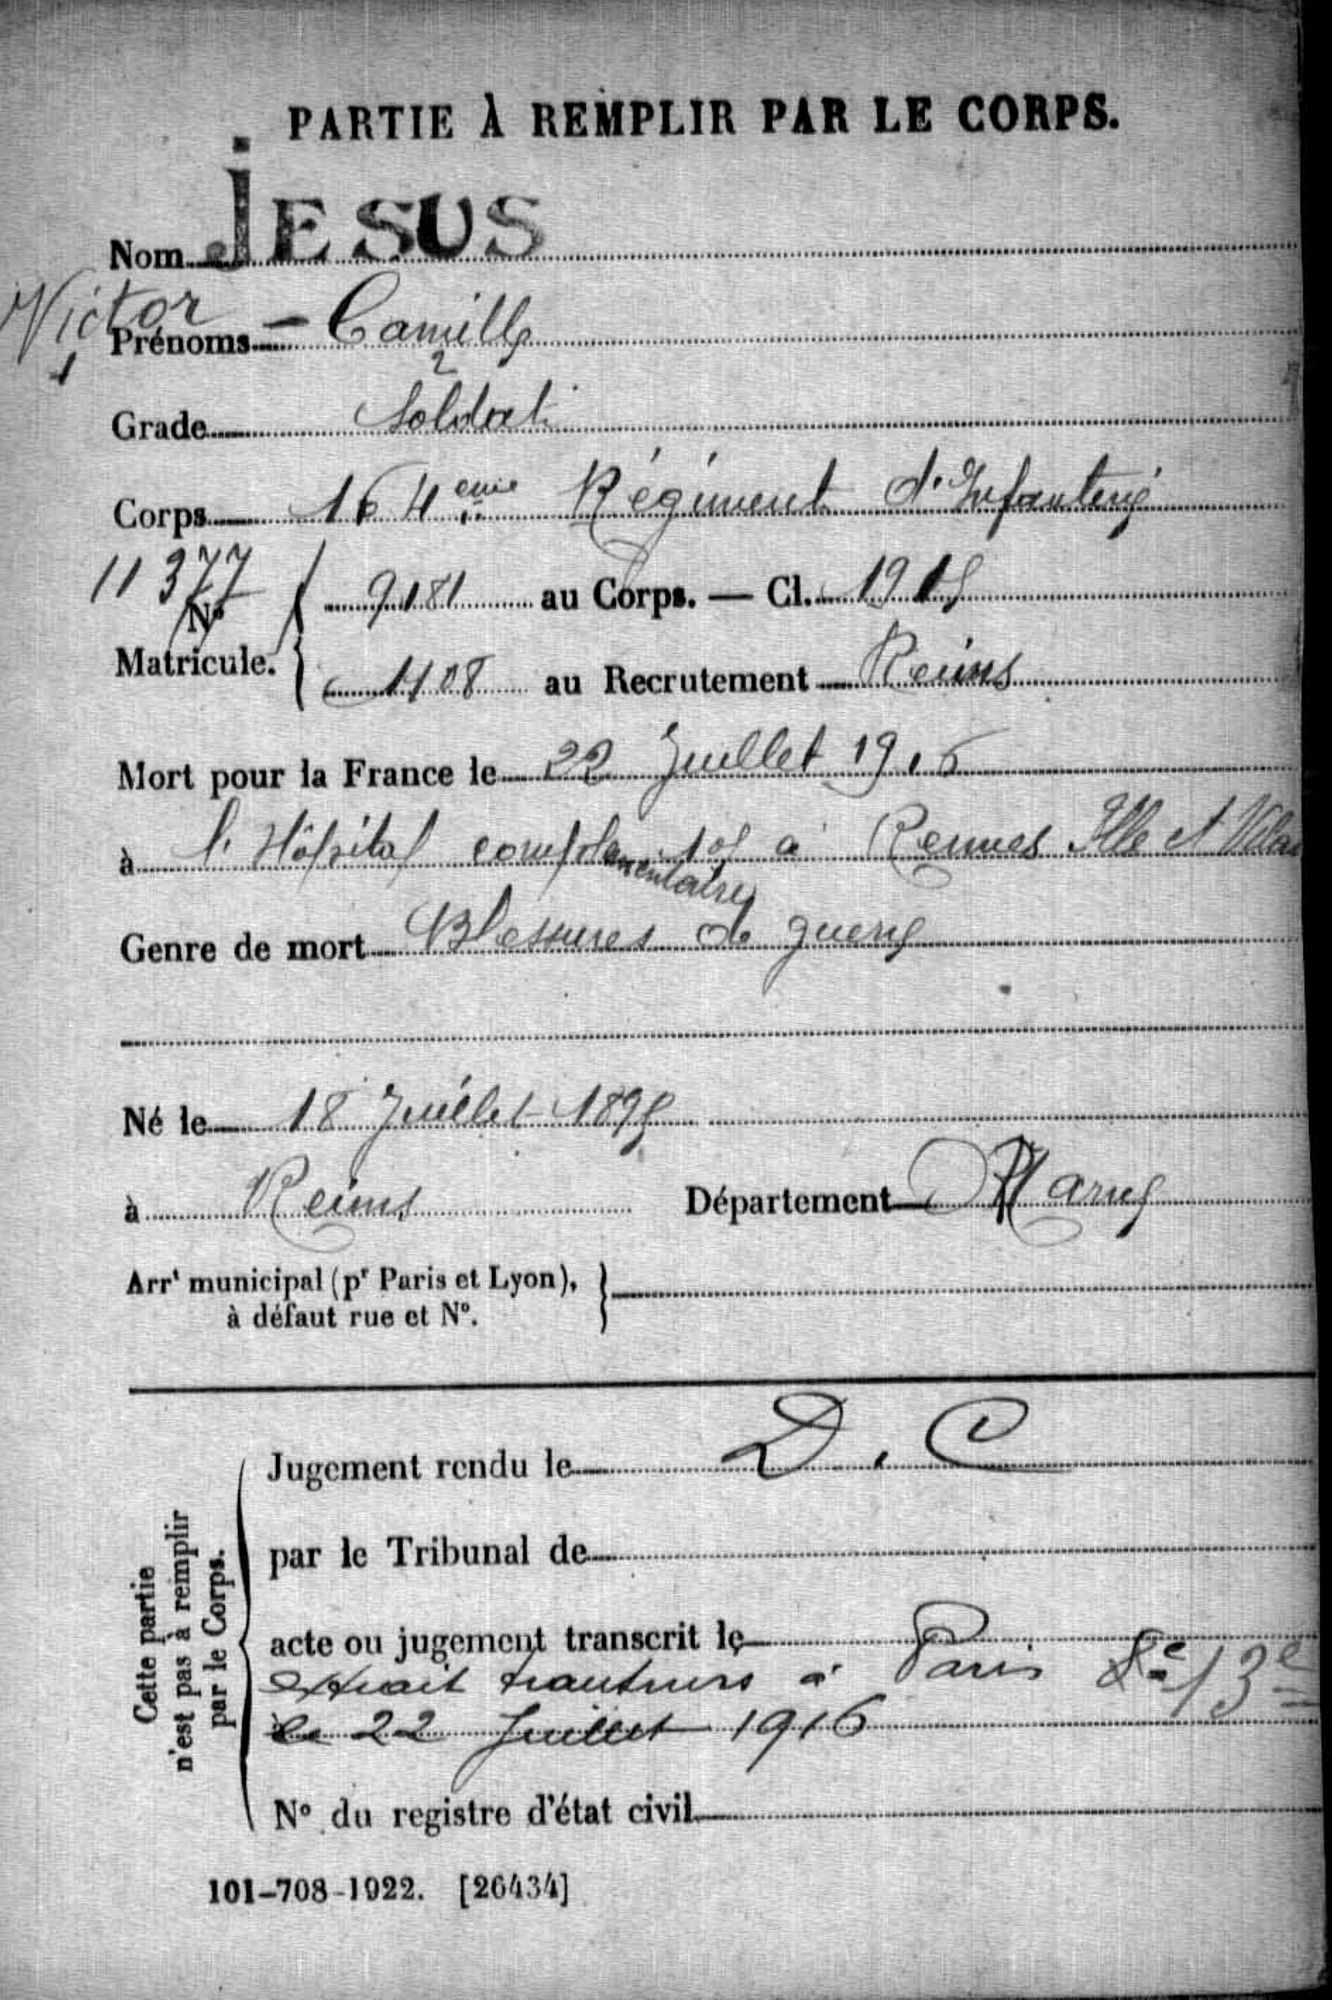 PARTIE À REMPLIR PAR LE CORPS.
Nom JESUS
Victor
Prénoms - Camille
1 2
Grade Soldat
Corps 164ème Régiment d'Infanterie
11377
Nº 9181 au Corps. — Cl. 1915
Matricule. 1108 au Recrutement Reims
Mort pour la France le 22 Juillet 1916
à l'Hôpital complémentaire à Rennes Ille et Vilaine
Genre de mort Blessures de guerre
Né le 18 Juillet 1895
à Reims Département Marne
Arrt municipal (pr Paris et Lyon),
à défaut rue et Nº.
Cette partie
n'est pas à remplir
par le Corps.
Jugement rendu le D. C
par le Tribunal de
acte ou jugement transcrit le
extrait à Paris 13e
le 22 Juillet 1916
Nº du registre d'état civil
101-708-1922. [26434]